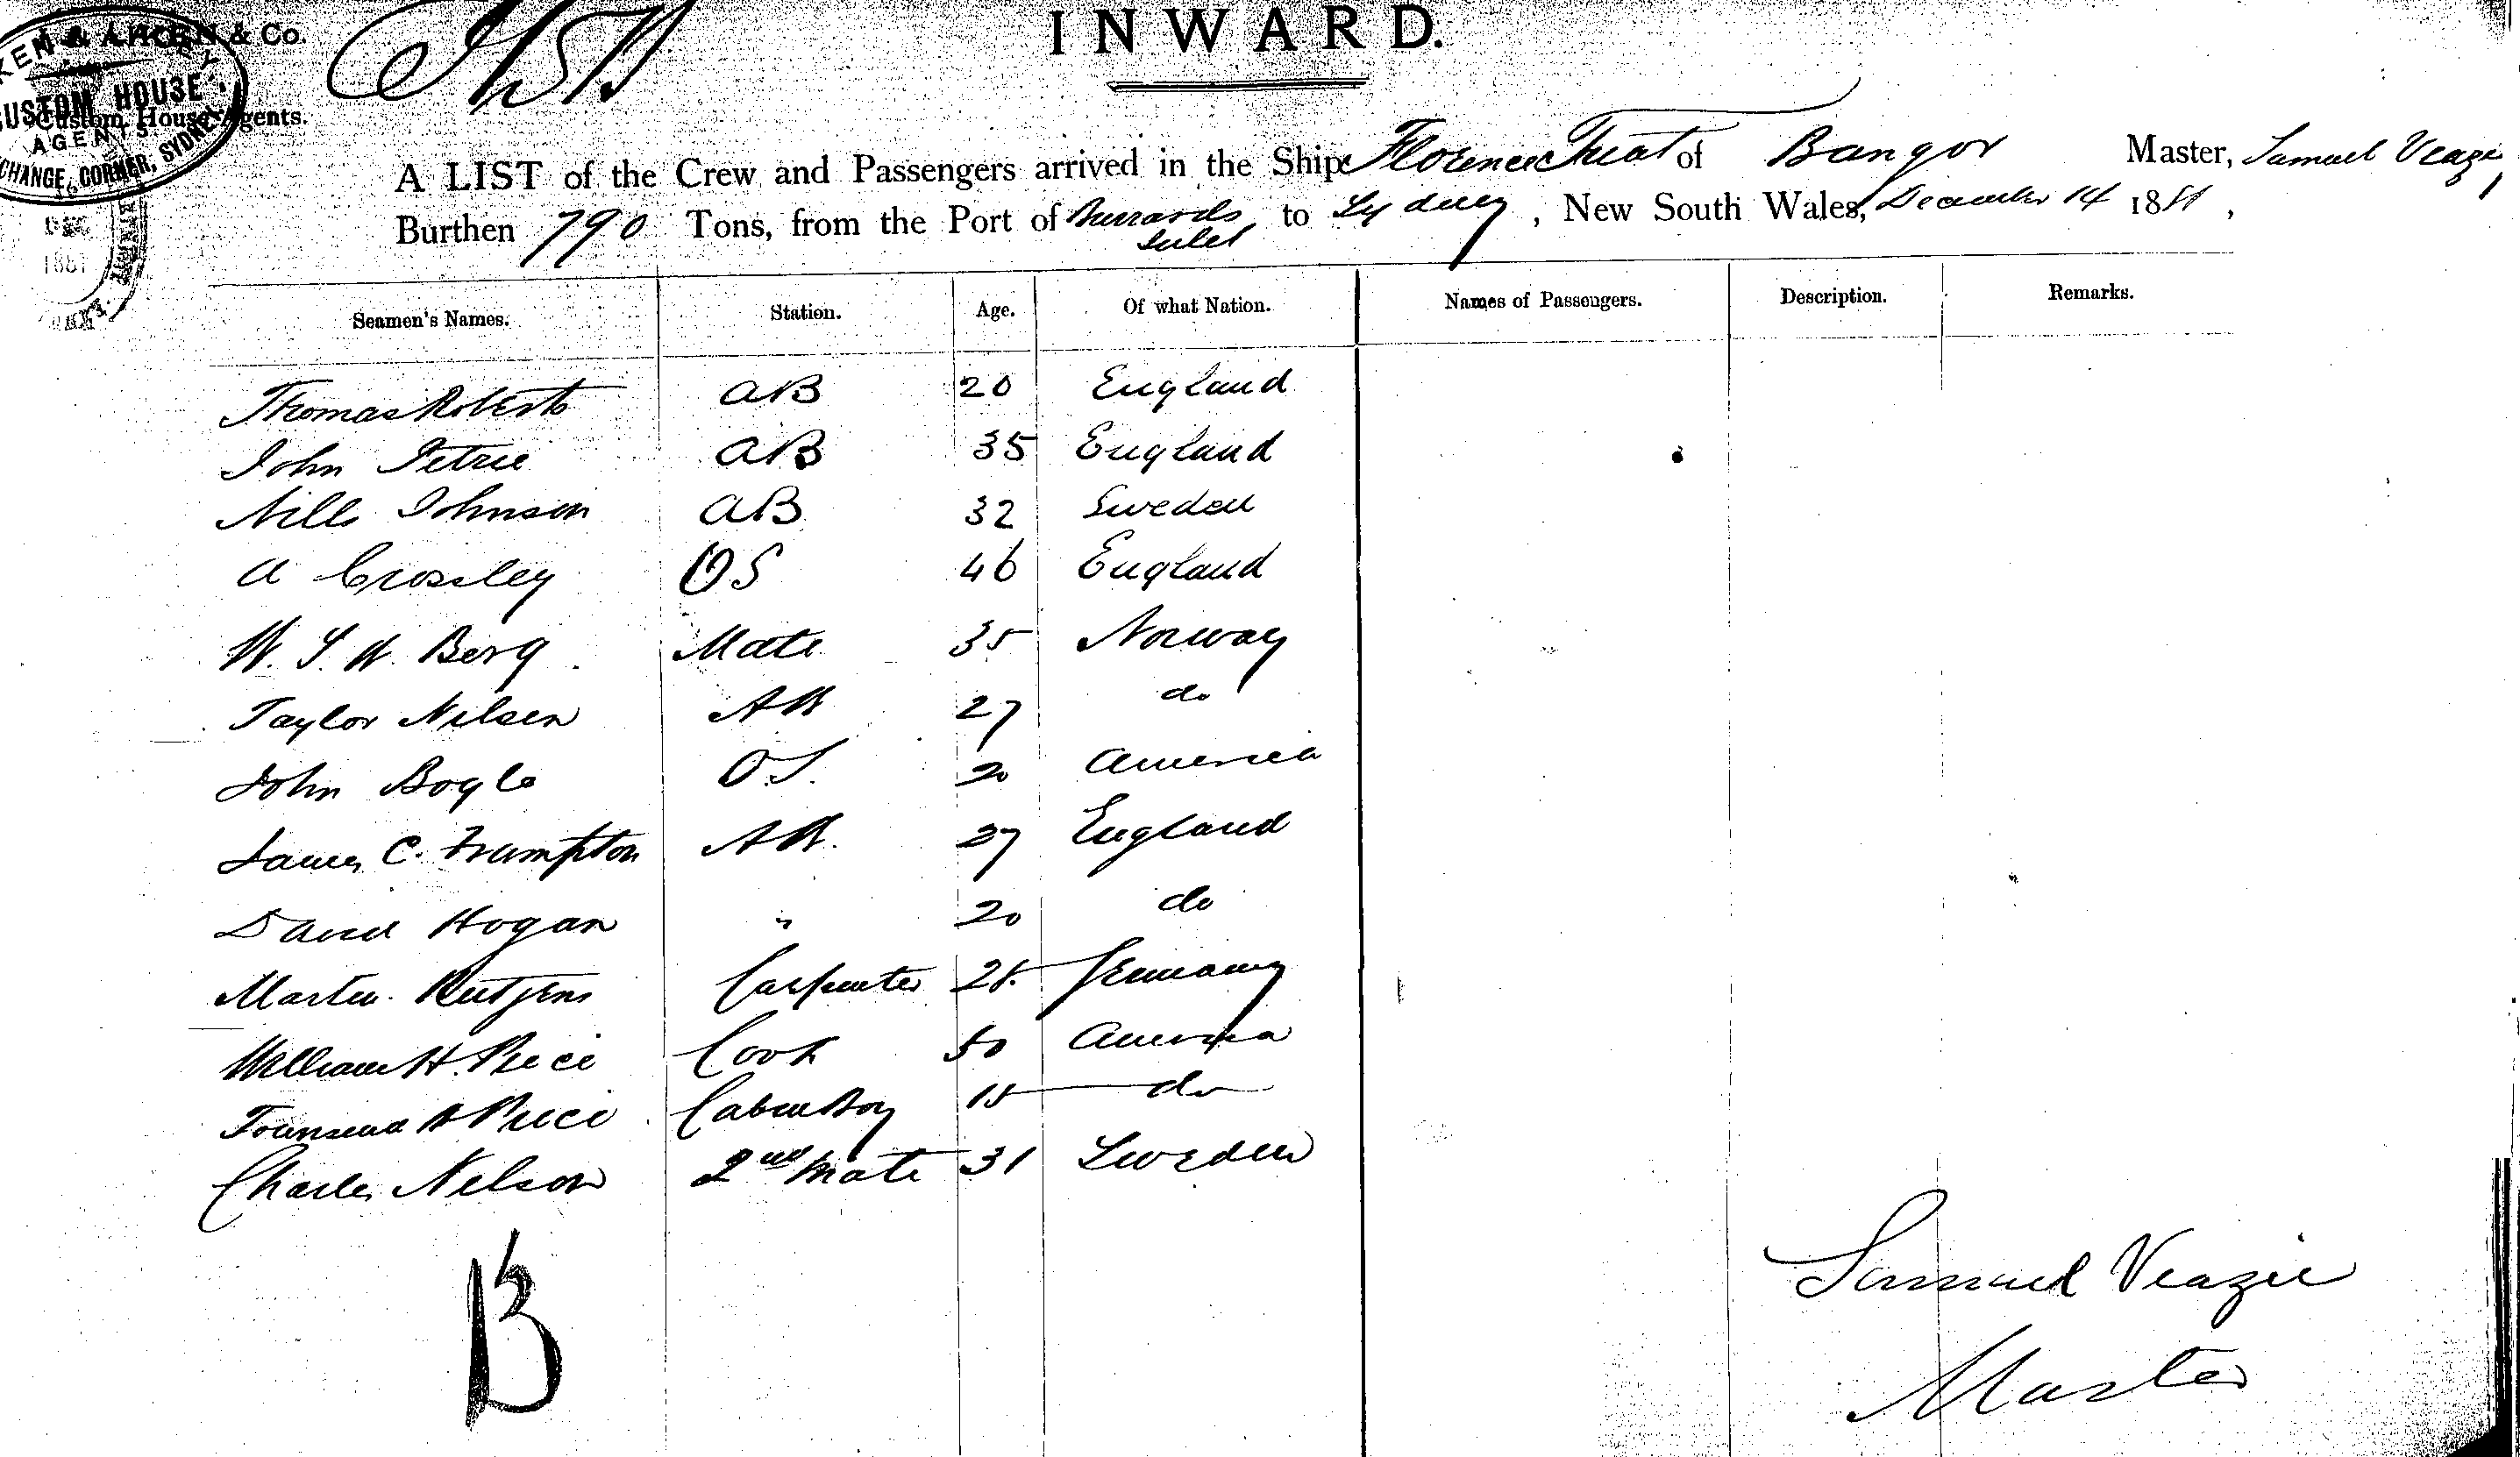 INWARD.
& Co.
CUSTOM HOUSE
Custom House Agents.
AGENTS
EXCHANGE CORNER, SYDNEY
1881
A LIST of the Crew and Passengers arrived in the Ship Florence Treat of Bangor Master, Samuel Veazie
Burthen 790 Tons, from the Port of Burrards Inlet to Sydney, New South Wales, December 14 1881,
Seamen's Names. Station. Age. Of what Nation. Names of Passengers. Description. Remarks.
Thomas Roberts AB 20 England
John Petrie AB 35 England
Nills Johnson AB 32 Sweden
A Crossley OS 46 England
W. S. W. Berg Mate 35 Norway
Taylor Nilsen AB 27 do
John Bogle O.S. 20 America
James C. Frampton AB. 27 England
David Hogan " 20 do
Martin Rutjens Carpenter 28 Germany
William H. Price Cook 50 America
Townsend Price Cabin Boy 15 do
Charles Nelson 2nd Mate 31 Sweden
13
Samuel Veazie
Master